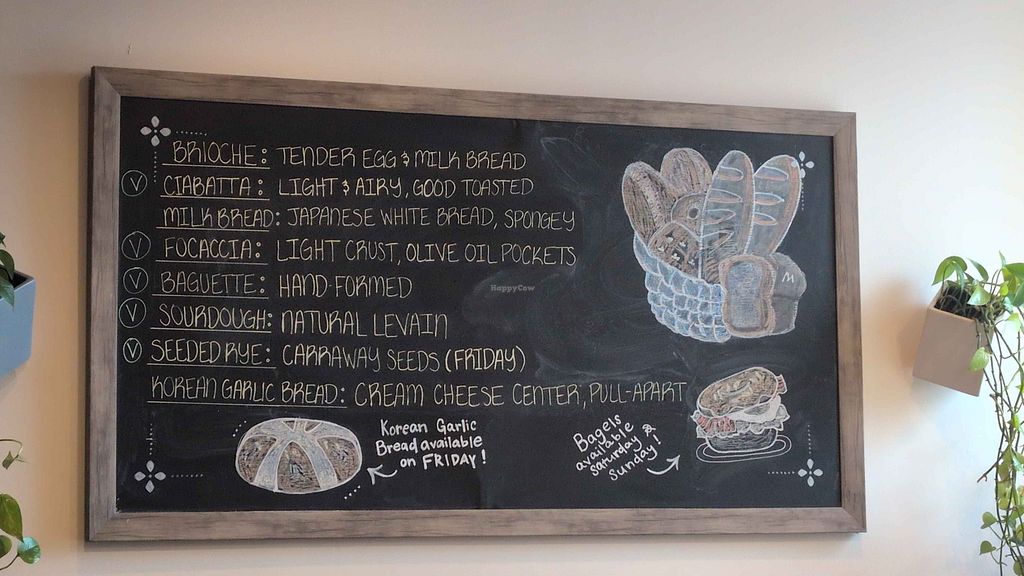 BRIOCHE: TENDER EGG & MILK BREAD
V CIABATTA: LIGHT & AIRY, GOOD TOASTED
MILK BREAD: JAPANESE WHITE BREAD, SPONGEY
V FOCACCIA: LIGHT CRUST, OLIVE OIL POCKETS
V BAGUETTE: HAND-FORMED
V SOURDOUGH: NATURAL LEVAIN
V SEEDED RYE: CARRAWAY SEEDS (FRIDAY)
KOREAN GARLIC BREAD: CREAM CHEESE CENTER, PULL-APART
Korean Garlic
Bread available
on FRIDAY!
Bagels
available
saturday &
sunday!
M
HappyCow